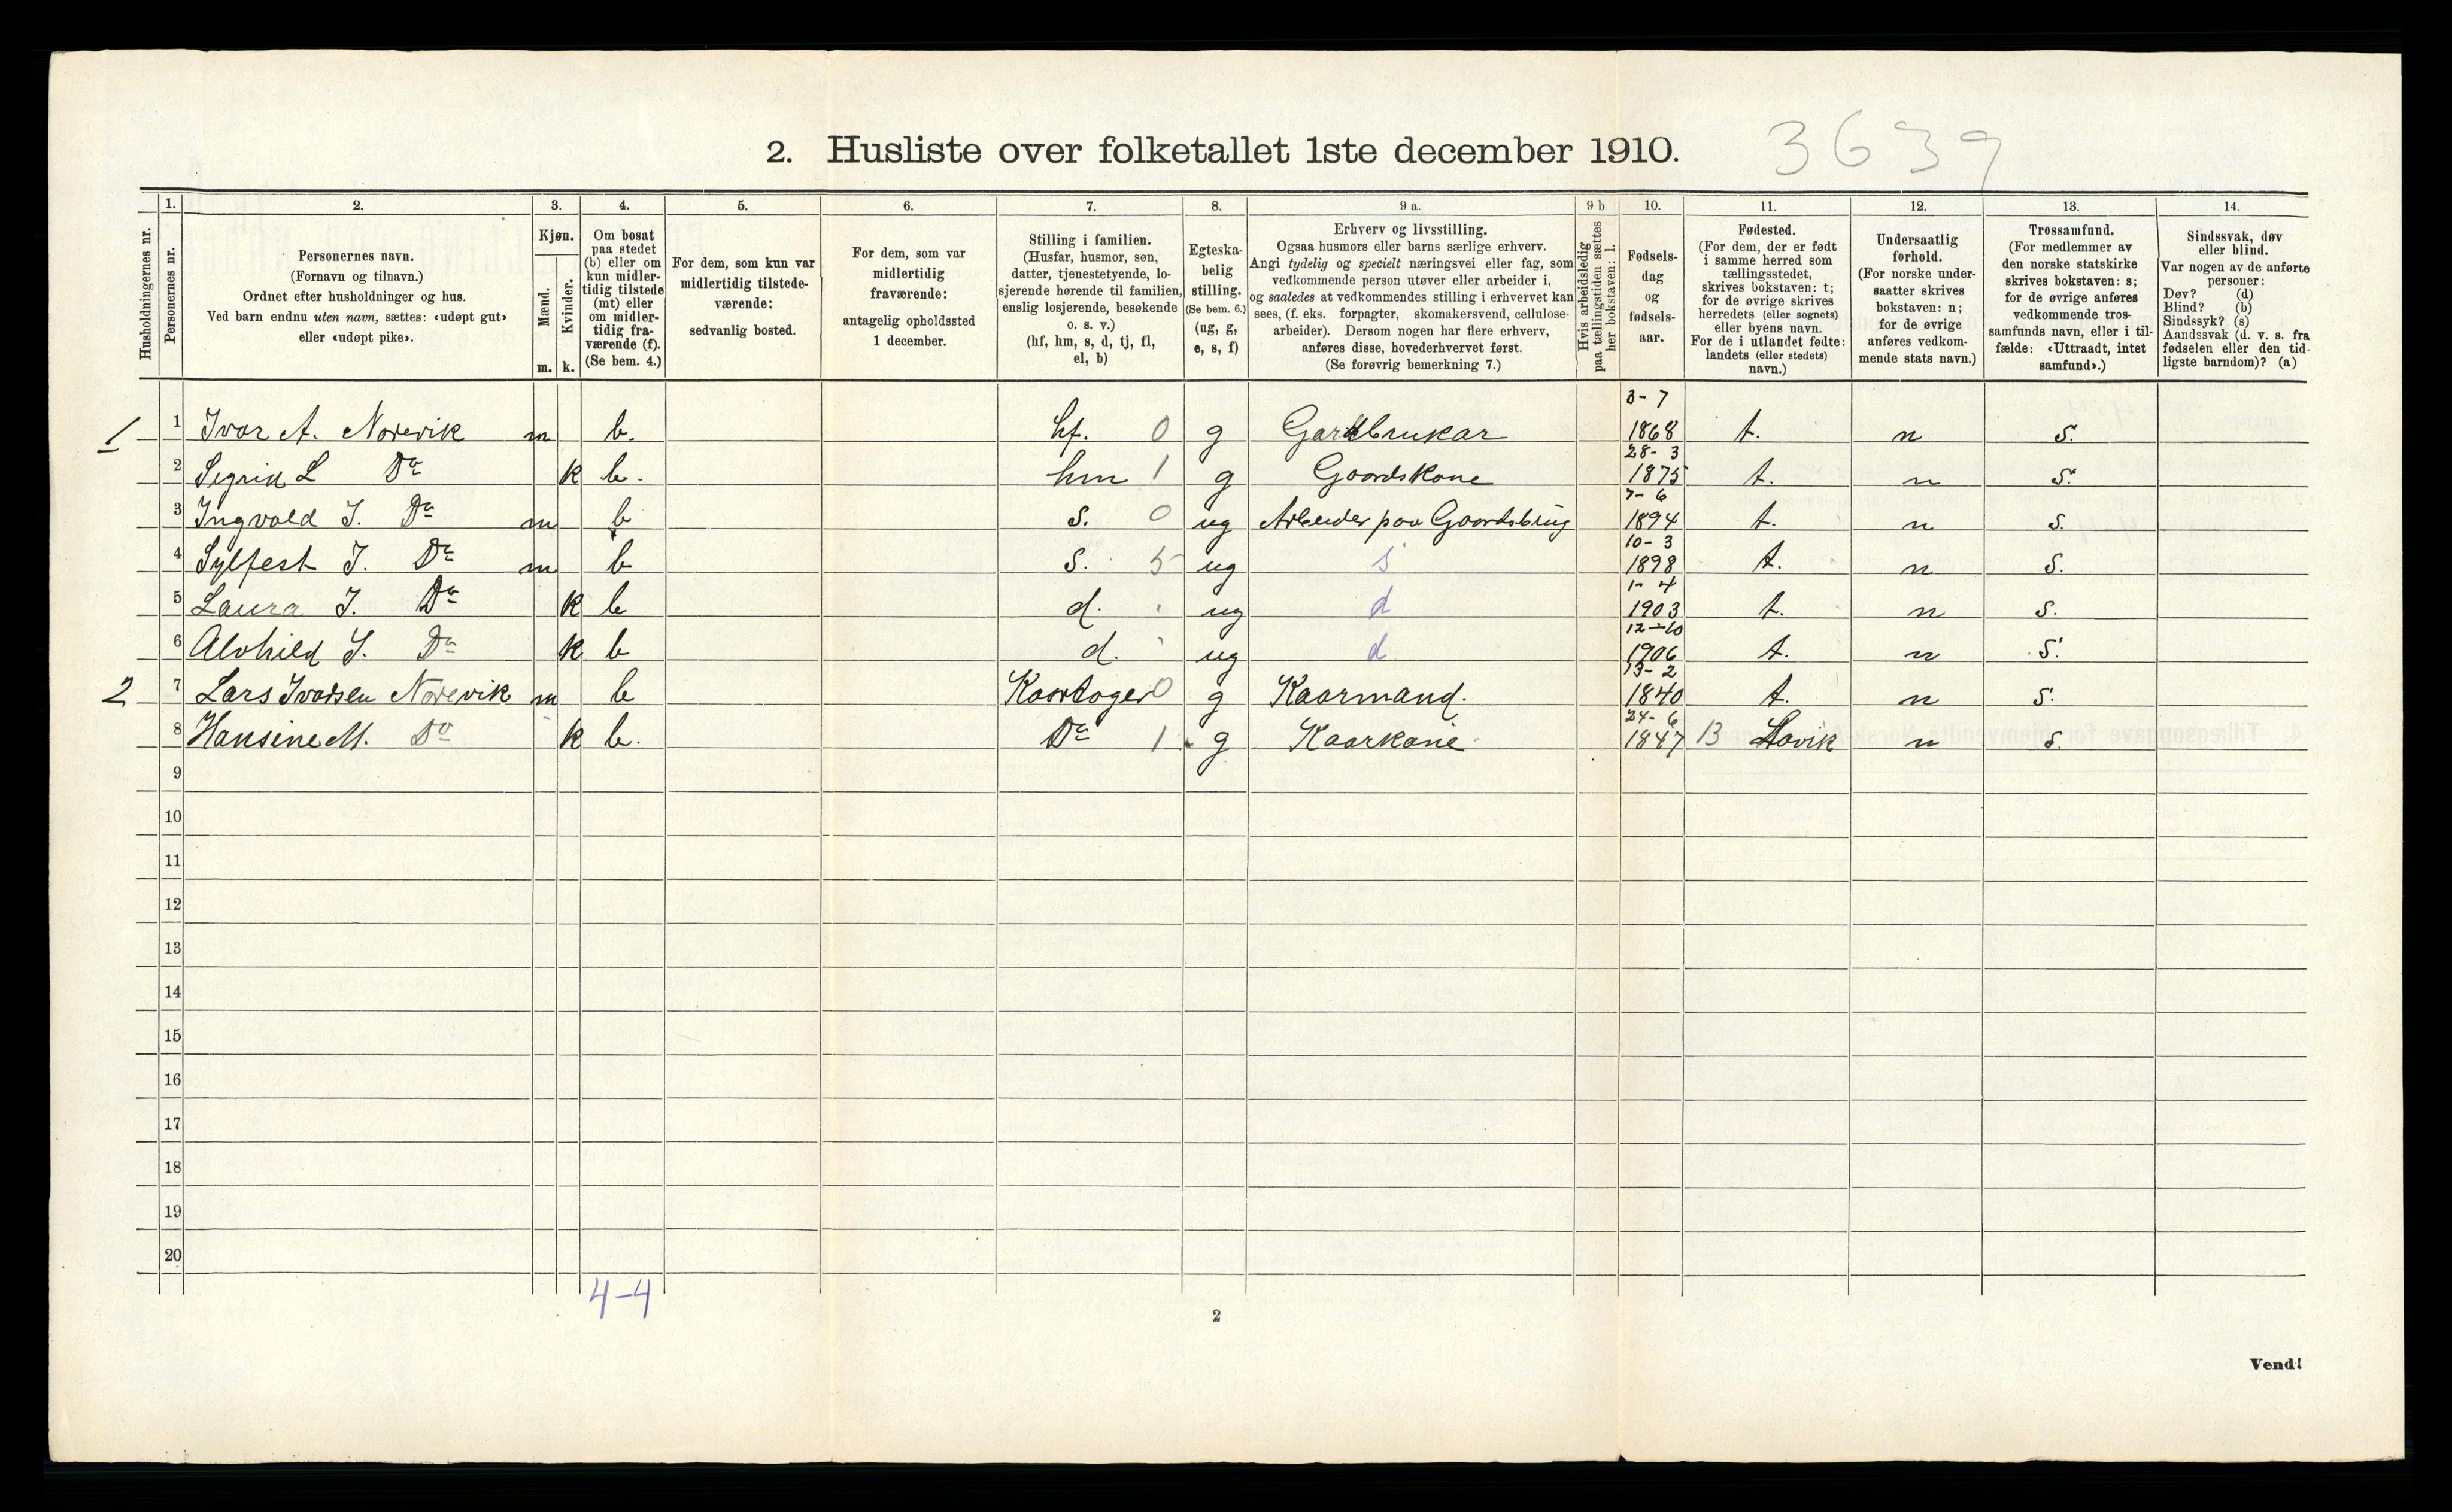 2. Husliste over folketallet 1ste december 1910.
3639
Husholdningernes nr.
1.
Personernes nr.
2.
Personernes navn.
(Fornavn og tilnavn.)
Ordnet efter husholdninger og hus.
Ved barn endnu uten navn, sættes: «udøpt gut»
eller «udøpt pike».
3.
Kjøn.
Mænd.
Kvinder.
m. k.
4.
Om bosat
paa stedet
(b) eller om
kun midler-
tidig tilstede
(mt) eller
om midler-
tidig fra-
værende (f).
(Se bem. 4.)
5.
For dem, som kun var
midlertidig tilstede-
værende:
sedvanlig bosted.
6.
For dem, som var
midlertidig
fraværende:
antagelig opholdssted
1 december.
7.
Stilling i familien.
(Husfar, husmor, søn,
datter, tjenestetyende, lo-
sjerende hørende til familien,
enslig losjerende, besøkende
o. s. v.)
(hf, hm, s, d, tj, fl,
el, b)
8.
Egteska-
belig
stilling.
(Se bem. 6.)
(ug, g,
e, s, f)
9 a.
Erhverv og livsstilling.
Ogsaa husmors eller barns særlige erhverv.
Angi tydelig og specielt næringsvei eller fag, som
vedkommende person utøver eller arbeider i,
og saaledes at vedkommendes stilling i erhvervet kan
sees, (f. eks. forpagter, skomakersvend, cellulose-
arbeider). Dersom nogen har flere erhverv,
anføres disse, hovederhvervet først.
(Se forøvrig bemerkning 7.)
9 b
Hvis arbeidsledig
paa tællingstiden sættes
her bokstaven: l.
10.
Fødsels-
dag
og
fødsels-
aar.
11.
Fødested.
(For dem, der er født
i samme herred som
tællingsstedet,
skrives bokstaven: t;
for de øvrige skrives
herredets (eller sognets)
eller byens navn.
For de i utlandet fødte:
landets (eller stedets)
navn.)
12.
Undersaatlig
forhold.
(For norske under-
saatter skrives
bokstaven: n;
for de øvrige
anføres vedkom-
mende stats navn.)
13.
Trossamfund.
(For medlemmer av
den norske statskirke
skrives bokstaven: s;
for de øvrige anføres
vedkommende tros-
samfunds navn, eller i til-
fælde: «Uttraadt, intet
samfund».)
14.
Sindssvak, døv
eller blind.
Var nogen av de anførte
personer:
Døv? (d)
Blind? (b)
Sindssyk? (s)
Aandssvak (d. v. s. fra
fødselen eller den tid-
ligste barndom)? (a)
1 1 Ivar A. Norevik m b. hf. 0 g Gardbrukar 3-7 1868 t. n s.
2 Sigrid L Do k b. hm 1 g Gaardskone 28-3 1875 t. n s.
3 Ingvald I. Do m b s. 0 ug Arbeider paa Gaardsbrug 7-6 1894 t. n s.
4 Sylfest I. Do m b s. 5 ug s 10-3 1898 t. n s.
5 Laura I. Do k b d. ug d 1-4 1903 t. n s.
6 Alvhild I. Do k b d. ug d 12-10 1906 t. n s.
2 7 Lars Ivarsen Norevik m b Kaartager 0 g Kaarmand. 13-2 1840 t. n s.
8 Hansine M. Do k b. Do 1 g Kaarkone 24-6 1847 13 Lavik n s.
9
10
11
12
13
14
15
16
17
18
19
20
4-4
2
Vend!